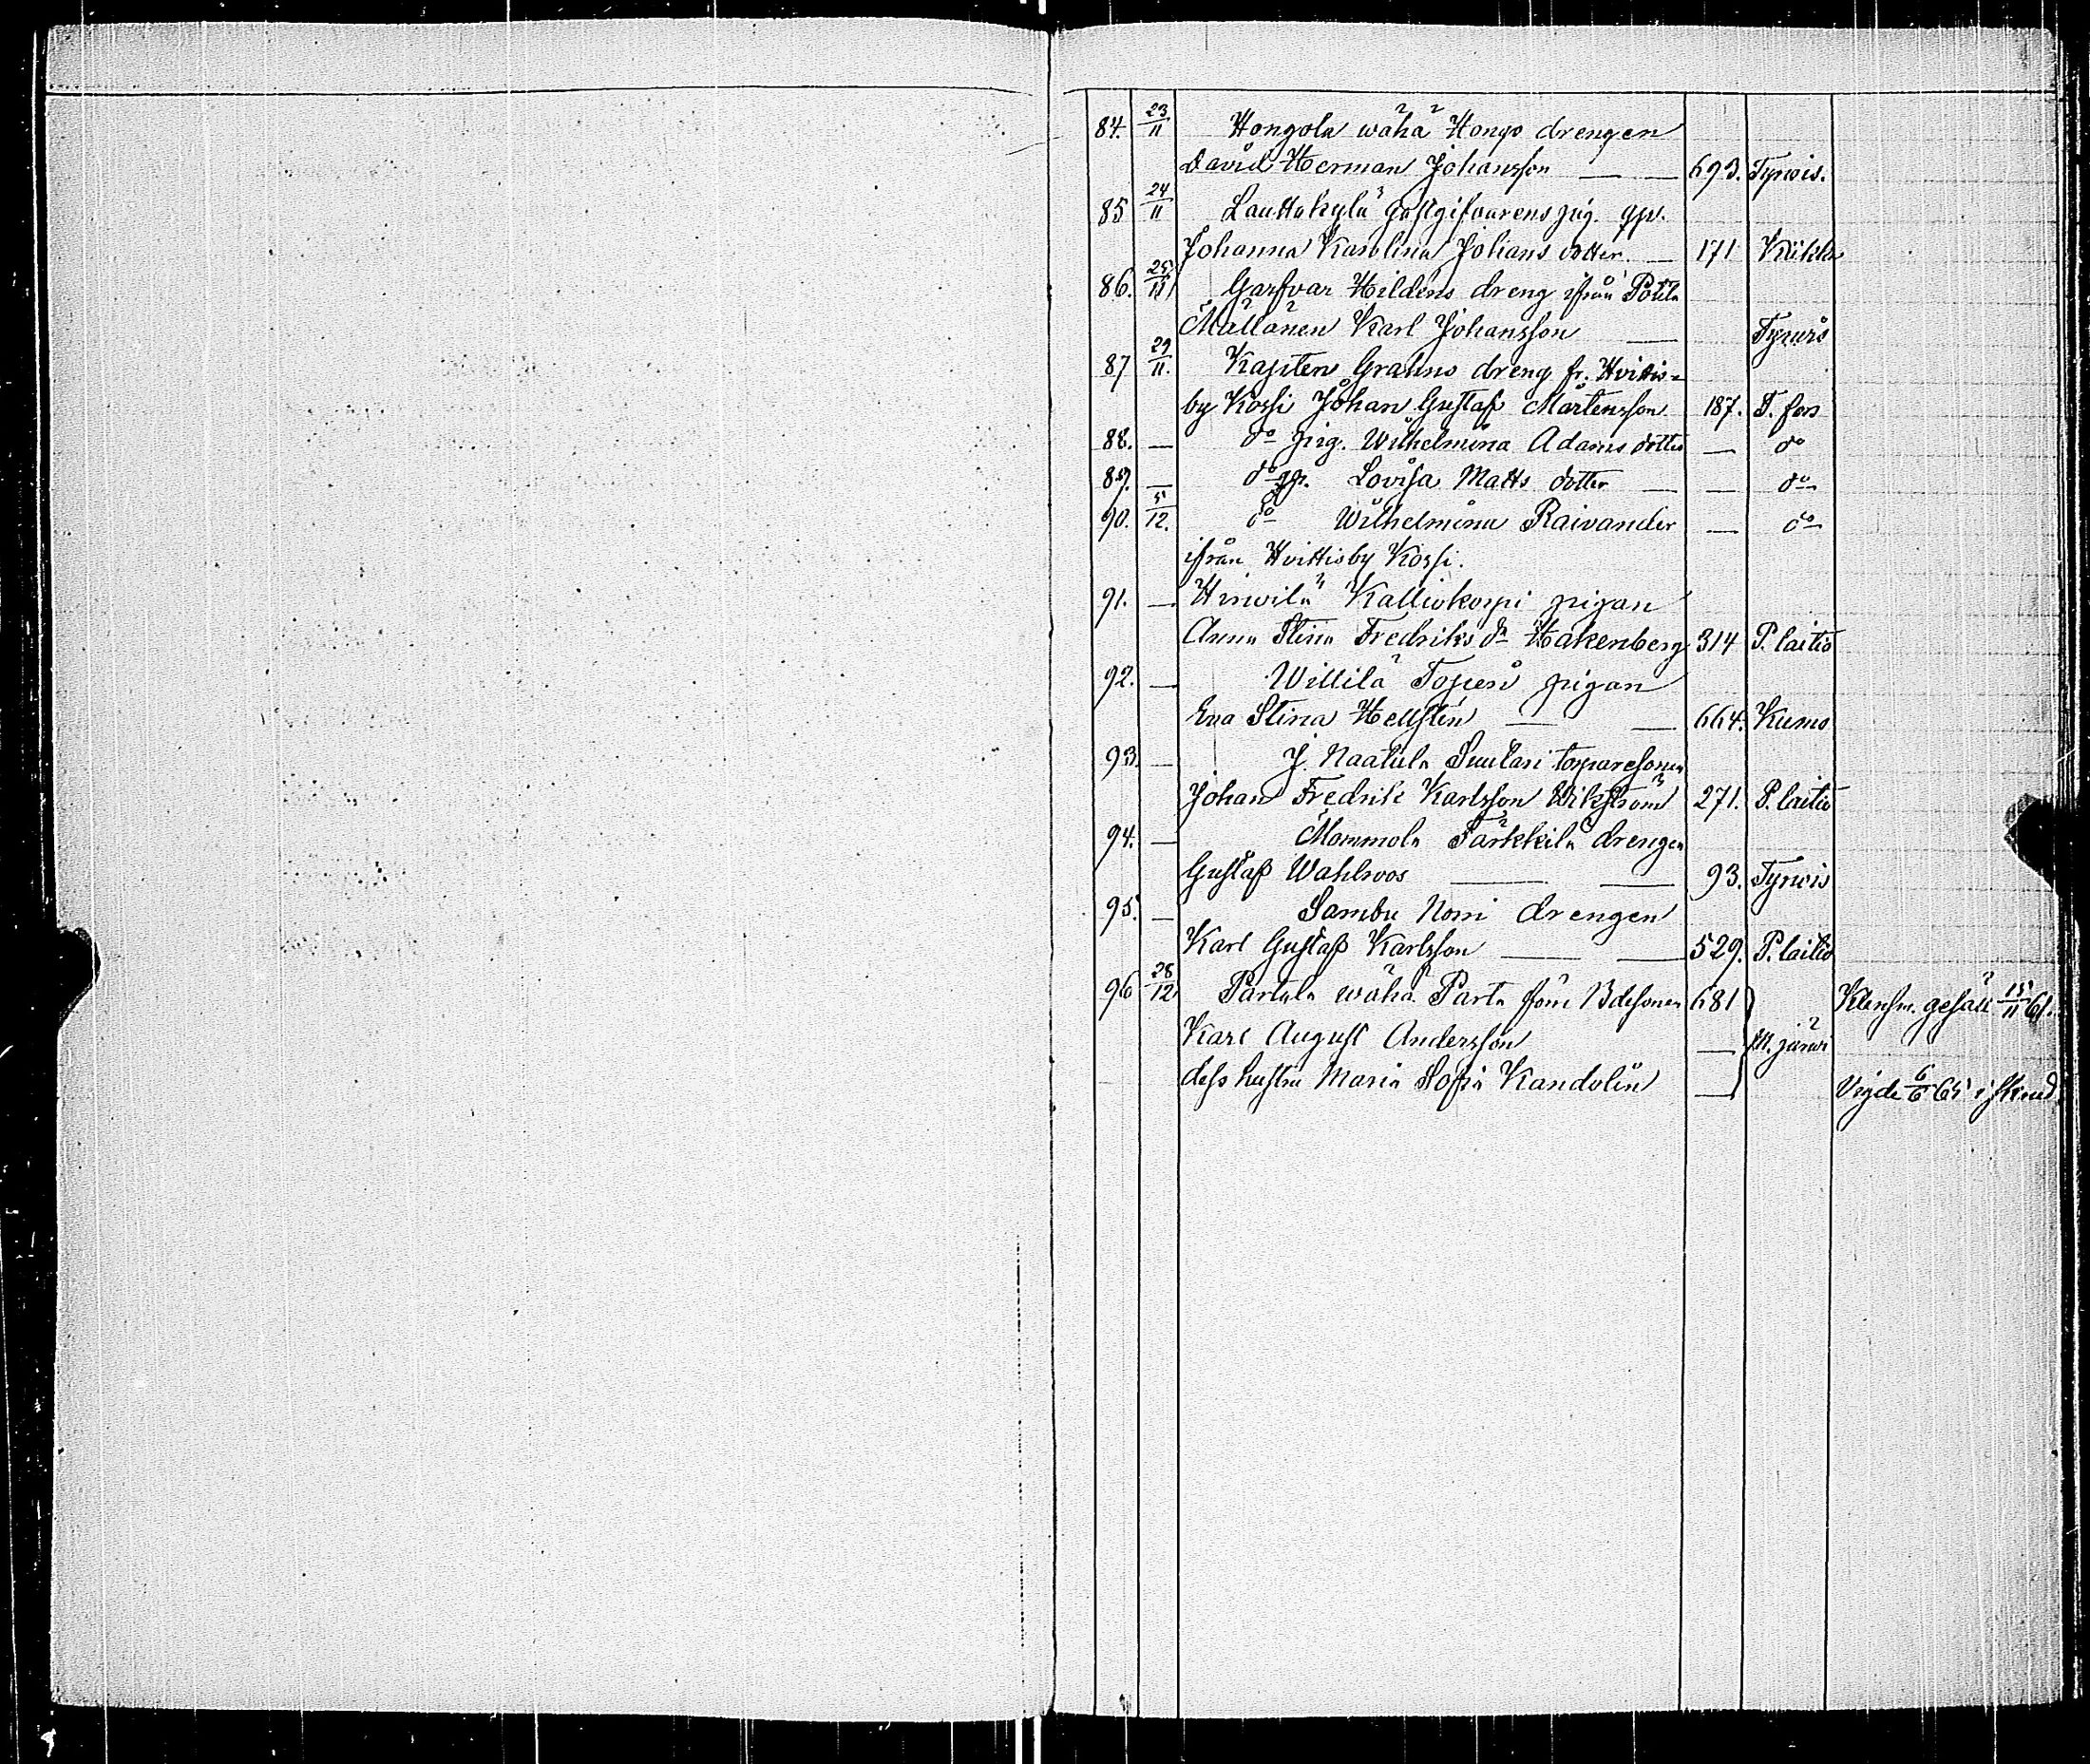 84. 23/11 Hongola wähä Hongo drengen
David Herman Johansson — — 693. Tyrvis.
85 24/11 Lauttakylä gästgifvarens pig. qp.
Johanna Karolina Johans dotter. — 171 Kiikka
86. 25/11 Garfvar Hildéns dreng ifrån
Karl Johansson — Tyrvis
87 29/11. Kapten Grahns dreng fr. Hvittis=
by Kossi Johan Gustaf Mårtensson 187. T. fors
88. — do pig. Wilhelmina Adams dotter — do
89. — do qp. Lovisa Matts dotter — — do
90. 5/12. do Wilhelmina Raivander — do
ifrån Hvittisby Kossi.
91. — Hirvilä Kalliokorpi pigan
Anna Stina Fredriks dr Hakenberg 314 P. laitio
92. — Willilä Topen pigan
Eva Stina Hellsten — — 664. Kumo
93. — J. Naatula Suutari torparesonen
Johan Fredrik Karlsson Wikström 271. P. laitio
94. — Mommola Tärkkilä drengen
Gustaf Wahlroos — — 93. Tyrvis
95. — Sambu Norri drengen
Karl Gustaf Karlsson — — 529. P. laitio
96 28/12 Partala wähä Parta Bdesonen 681 gesäll 15/11 61.
Karl August Andersson — M. järvi
dess hustru Maria Sofia Kandolin — Vigde 6/6 65